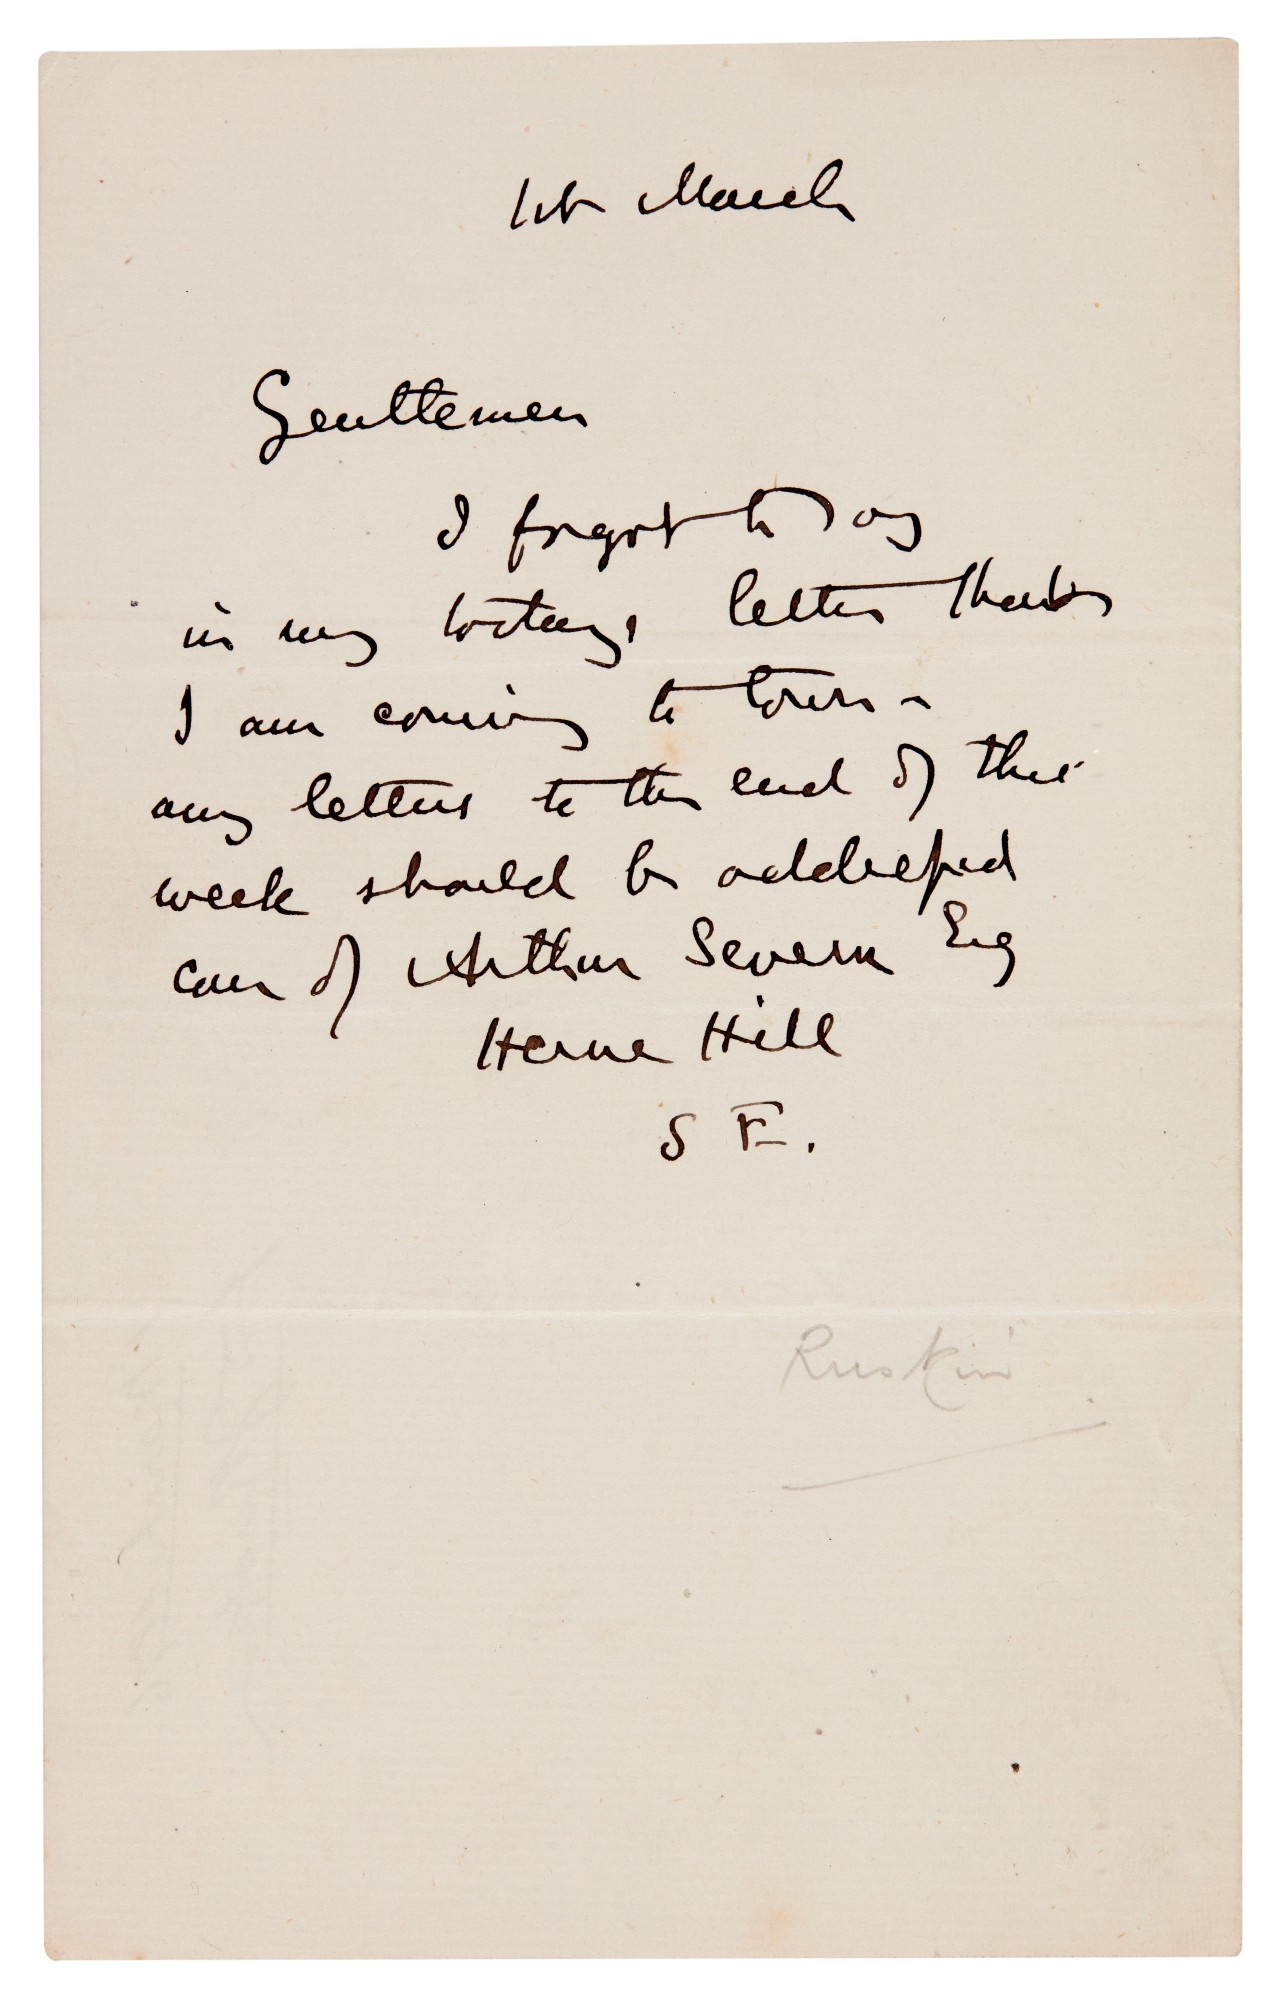 1st March
Gentlemen
I forgot to say
in my todays letter that
I am coming to town -
any letters to the end of this
week should be addressed
care of Arthur Severn Esq
Herne Hill
S E.
Ruskin